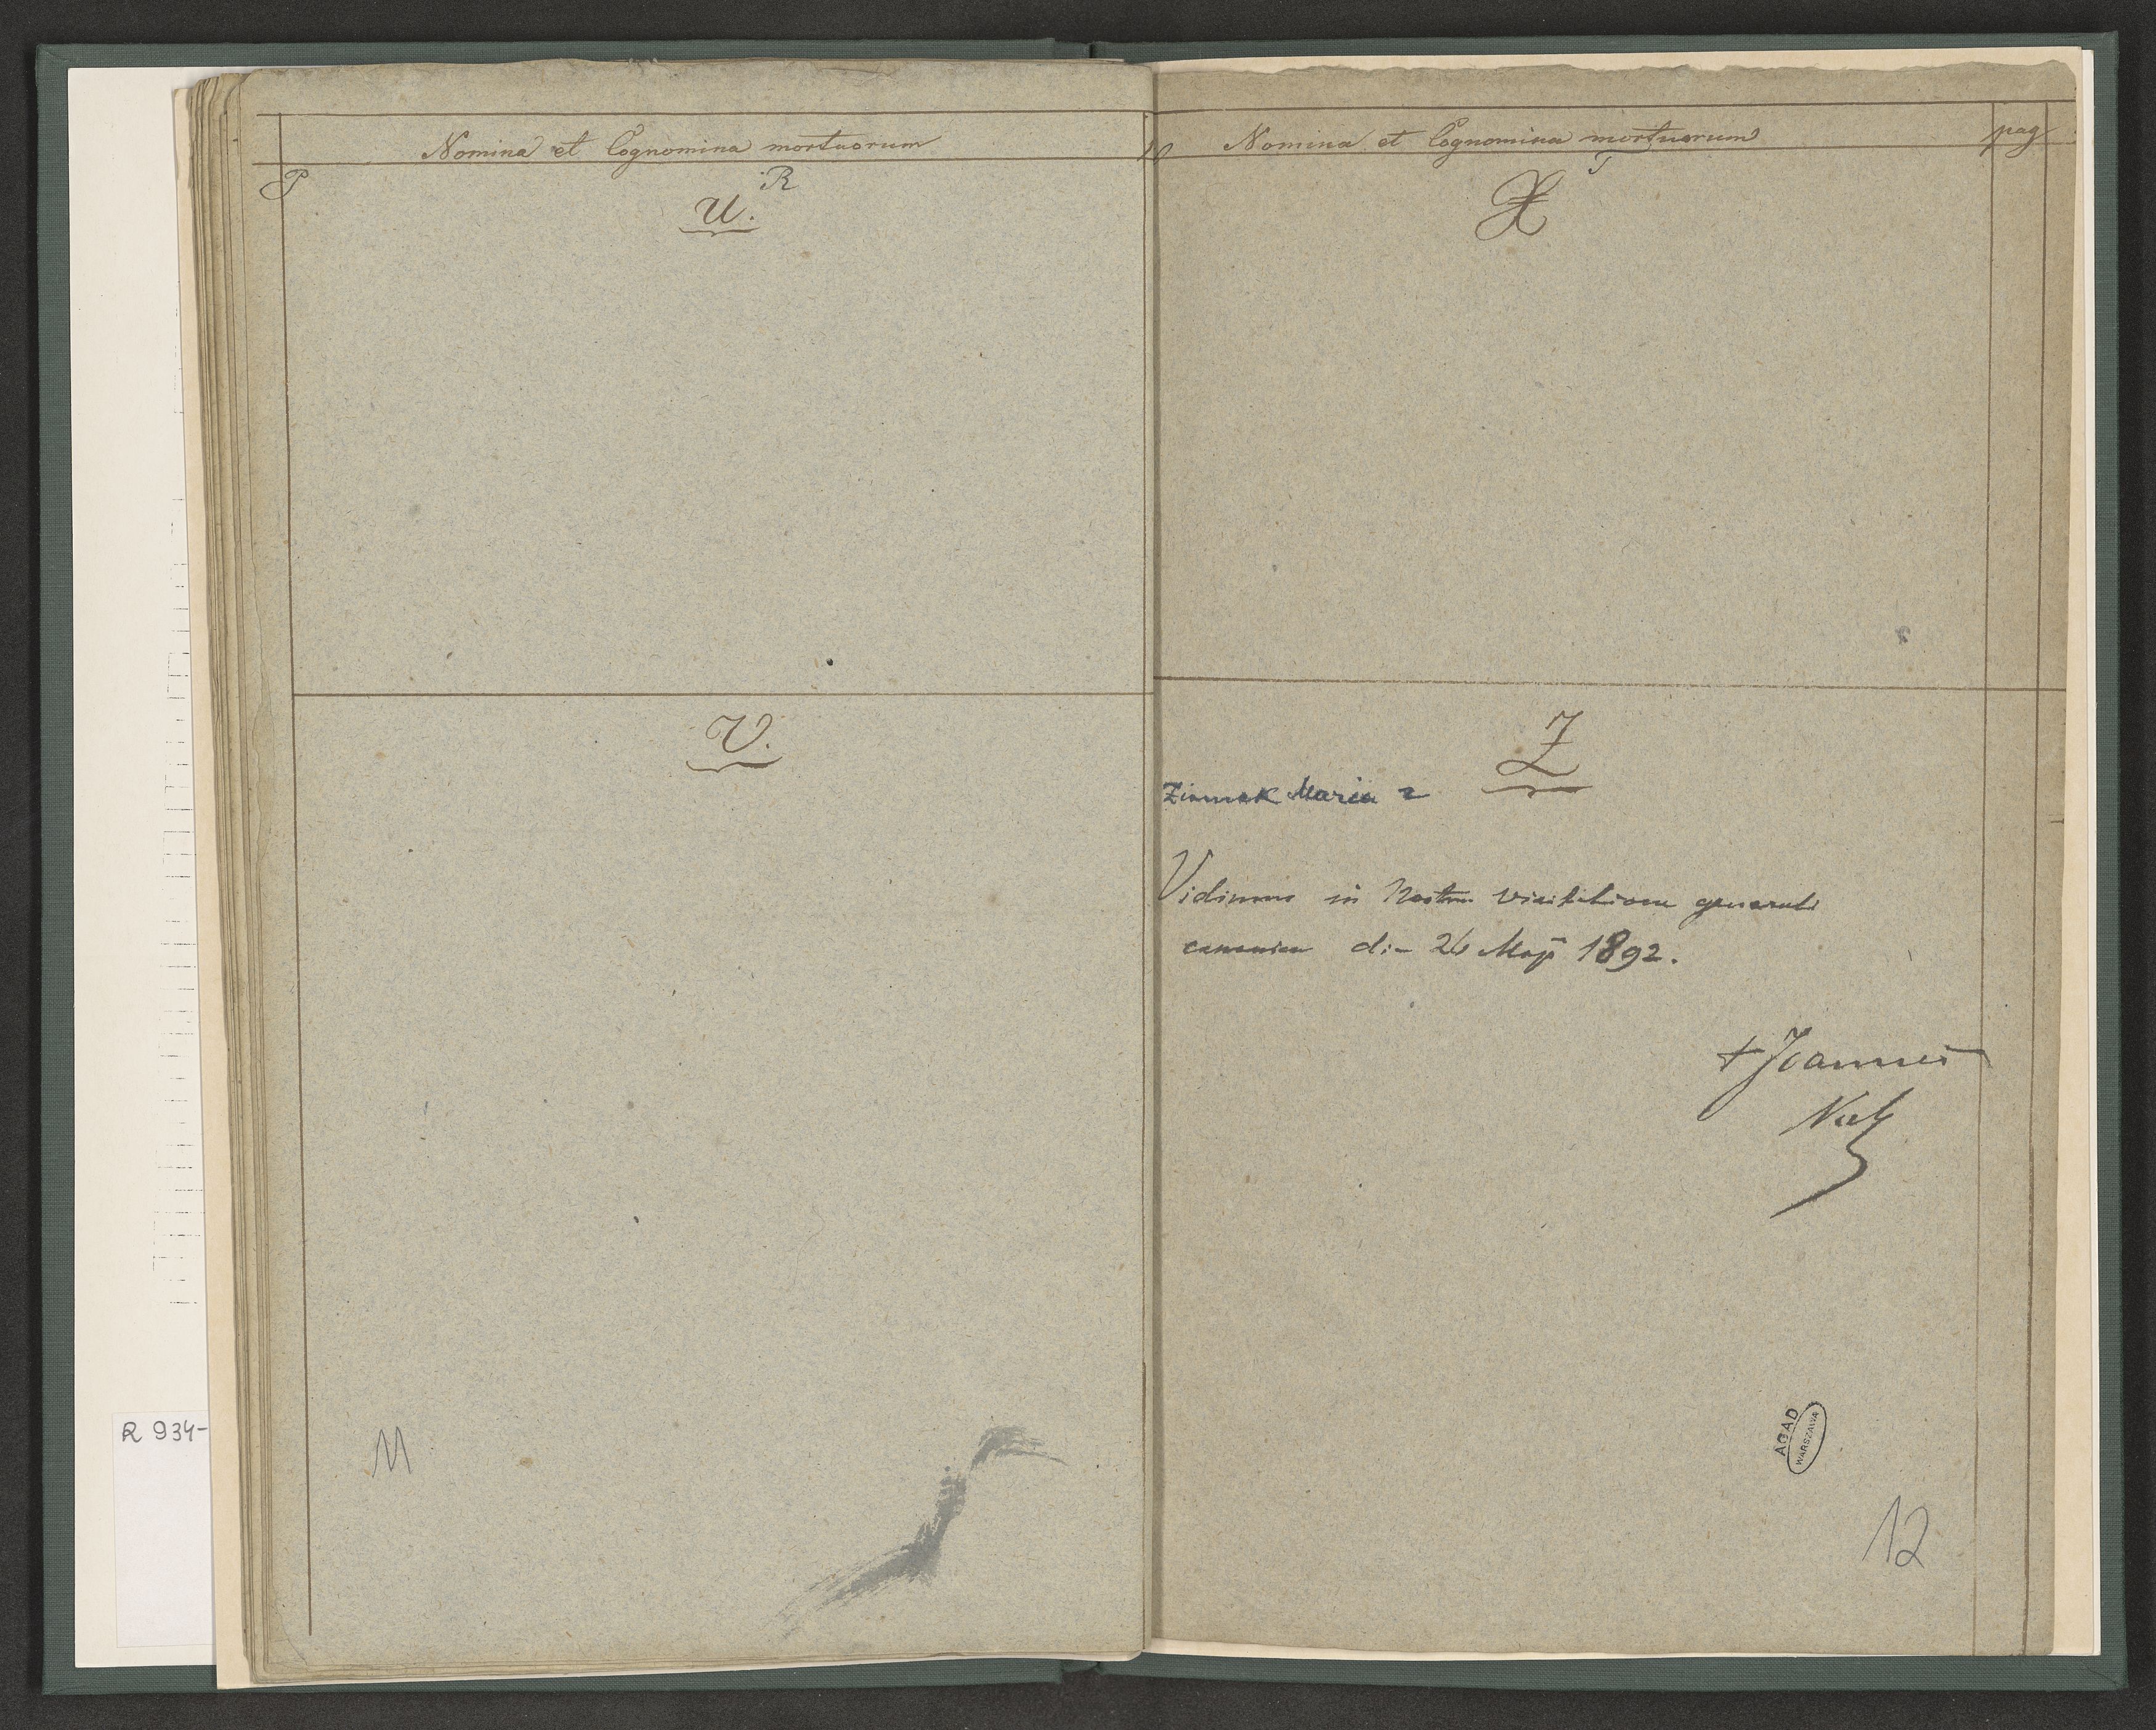 Nomina et Cognomina mortuorum
P
R
U.
V.
11
R 934-
Nomina et Cognomina mortuorum pag
T
X
Z
Maria 2
Vidimus in visitatione generali
canonica die 26 Maji 1892.
+ Joannes
AGAD
WARSZAWA
12